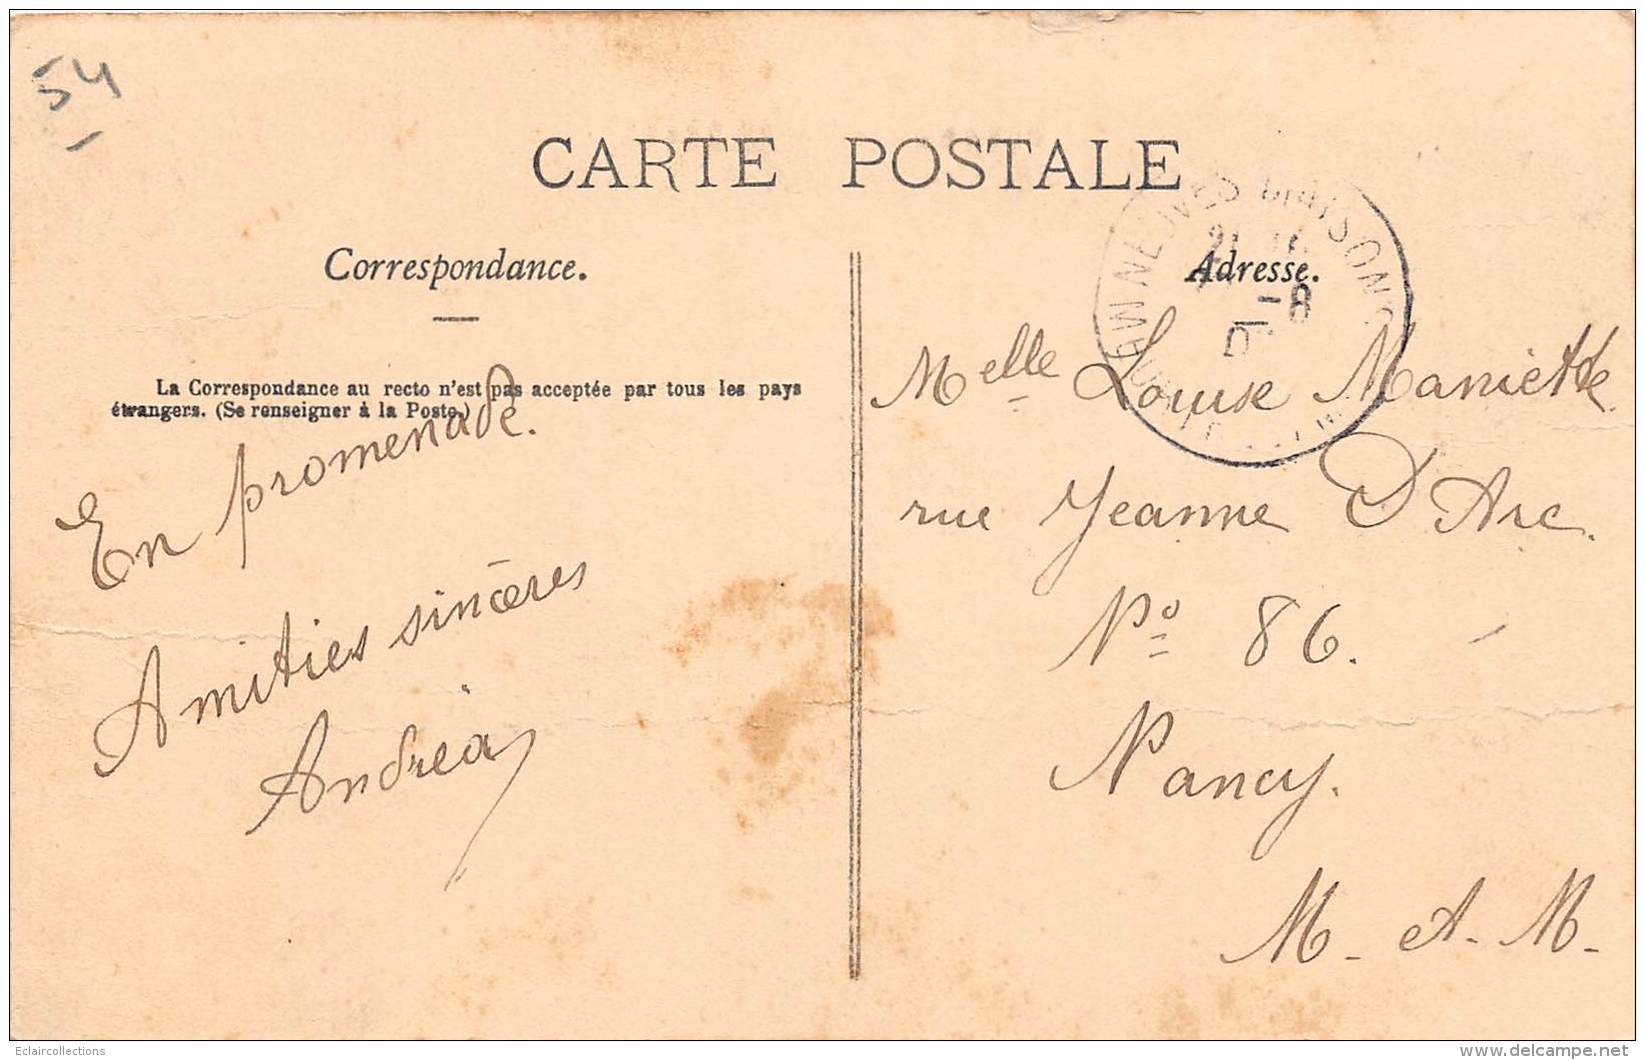 54
CARTE POSTALE
Correspondance.
Adresse.
La Correspondance au recto n'est pas acceptée par tous les pays
étrangers. (Se renseigner à la Poste.)
En promenade.
Amitiés sincères
Andréa
Melle Louise
rue Jeanne D'Arc.
No 86.
Nancy.
M. et. M.
Eclaircollections
delcampe.net